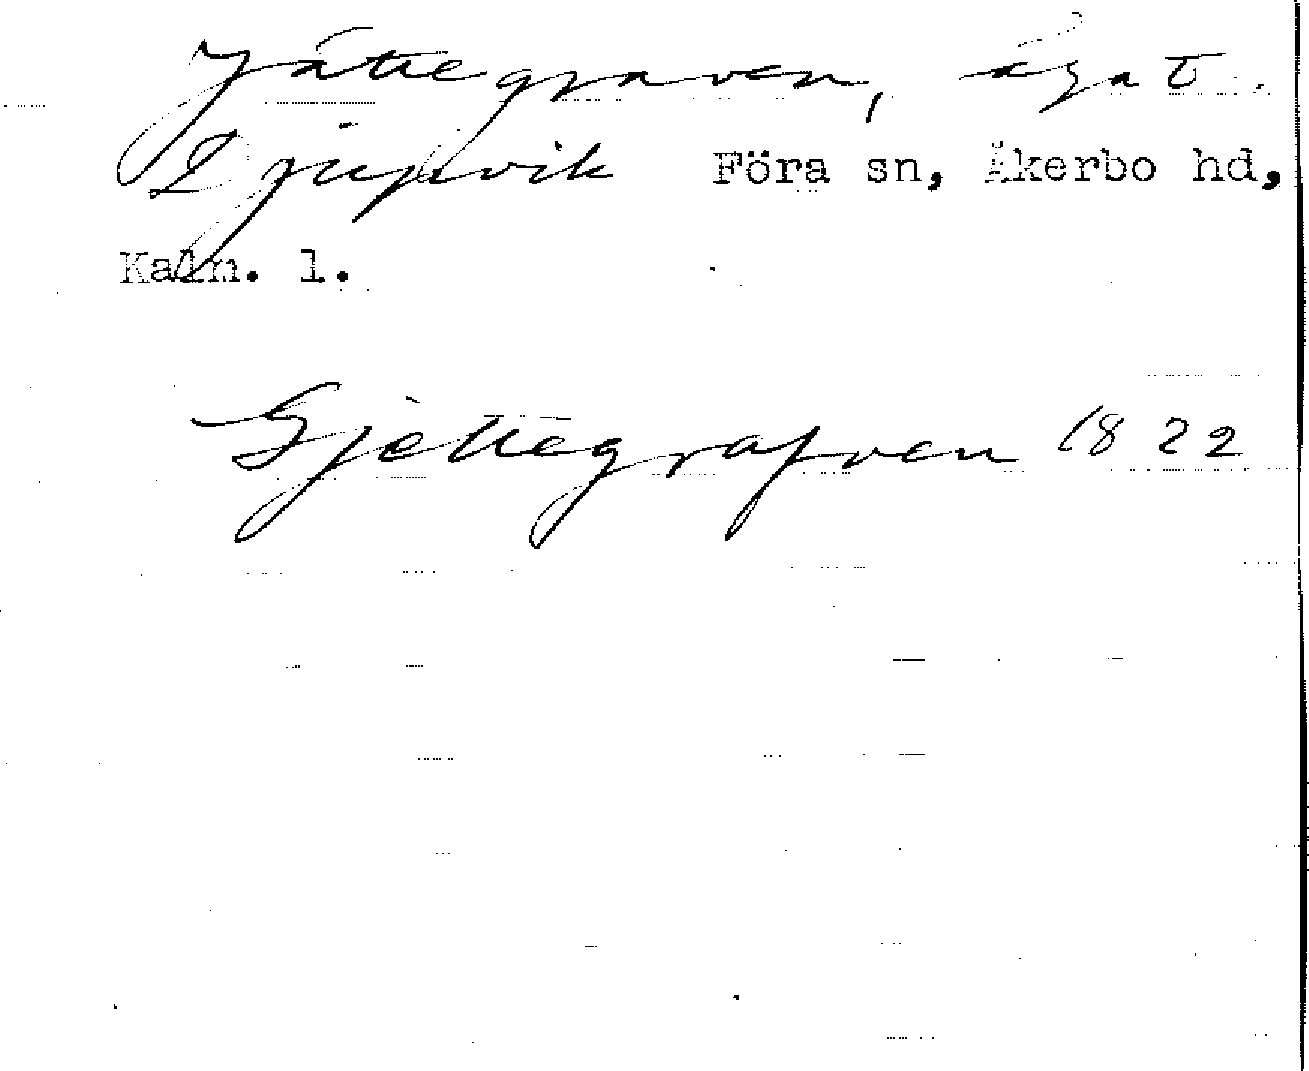 Jättegraven, ägat.
Djupvik Föra sn, Åkerbo hd,
Kalm. l.
Gjettegrafven 1822